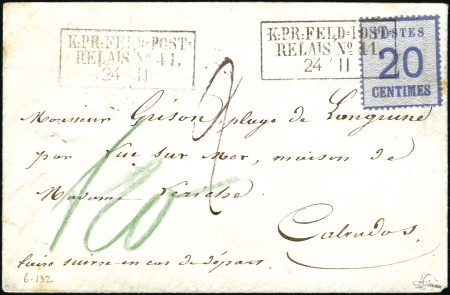 K.PR:FELD-POST-
RELAIS No 41.
24 11
K:PR:FELD-POST-
RELAIS No 41
24 11
POSTES
20
CENTIMES
2
Monsieur Grison, plage de Langrune
par Luc sur Mer, maison de
Madame
Calvados.
faire suivre en cas de départ
6-132